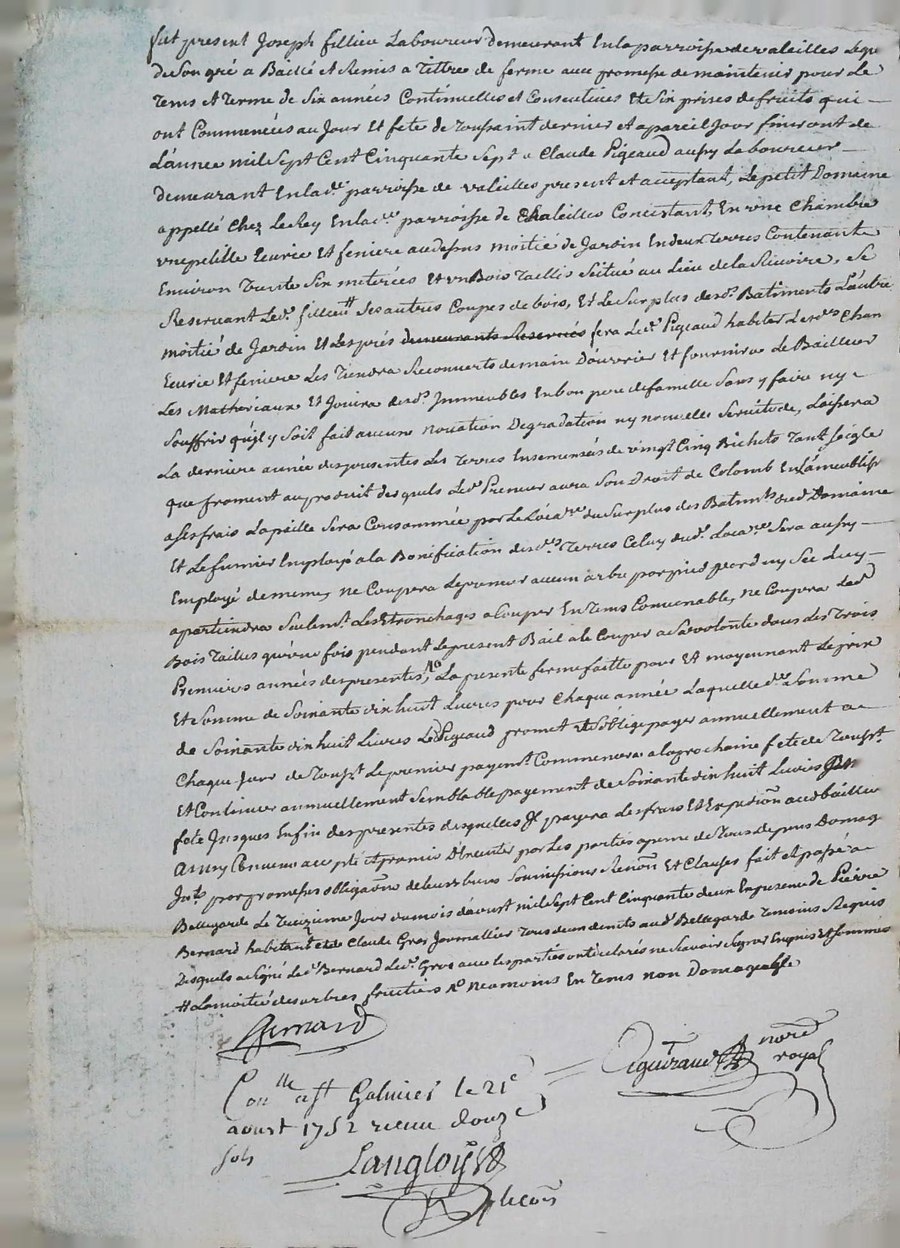 fut present Joseph fillieu Laboureur demeurant Enla parroisse de valeilles Leque
de Son gré a Baillé et Remis a tittre de ferme avec promesse de maintenir pour Le
tems et terme de Six années Continuelles et Consecutives et de Six prises de fruits qui
ont Commencées au Jour et fete de toussaint dernier et apareil Jour finiront de
L'année mil Sept Cent Cinquante Sept a Claude Pigeaud aussy Laboureur
demeurant Enlad.e parroisse de valeilles present et acceptant, Le petit Domaine
appellé Chez LeRey Enlad.e parroisse de Chaleilles Concistant, En une Chambre
une petitte Ecurie Et feniere audessus moitié de Jardin En deux terres Contenante
Environ trente Six meterées Et un Bois taillis Scitué au Lieu de la , Se
Reservant Led. fillieu # Ses autres Coupes de bois, Et Le Surplus desd. Batiments L'autre
moitié de Jardin Et Les prés demeurants Reservés fera Led. Pigeaud habiter Lesd.s Cham
Ecurie Et feniere Les tiendra Recouverts de main D'ouvrier Et fournira Le Bailleur
Les Matheriaux Et Jouira desd. Immeubles En bon pere de famille Sans y faire ny
Souffrir qu'il y Soit fait aucune novation Degradation ny nouvelle Servitude, Laissera
La derniere année des presentes Les terres Ensemensés de vingt Cinq Bichets tant seigle
que froment au produit desquels Led. Preneur aura Son Droit de Colomb En
a Ses frais La paille Sera Consommée par Le Loca.re du Surplus des Batim.ts dud. Domaine
Et Le fumier Employé a la Bonification desd.s terres Celuy dud. Loca.re Sera aussy
Employé de meme, ne Coupera Le preneur aucun arbre par pied verd ny Sec Luy
apartiendra Seulem.t Les Etronchages a Couper En tems Convenable, ne Coupera Led.
Bois taillis qu'une fois pendant Le present Bail a le Couper a Sa volonté dans Les trois
Premieres années des presentes, La presente ferme faitte pour Et moyennant Le prix
Et Somme de Soixante dix huit Livres pour Chaque année Laquelle d.e Somme
de Soixante dix huit Livres Led. Pigeaud promet Et S'oblige payer annuellement a
Chaque Jour de touss.t Le premier payem.t Commencera a la prochaine fete de touss.t
Et Continuer annuellement Semblable payement de Soixante dix huit Livres
fete Jusques Enfin des presentes desquelles Il payera Les frais Et Expedion aud. bailleur
Ainsy Convenu accepté Et promis D'Executer par Les parties a peine de tous depens Domag
Int. par promesses obligaon de leurs biens Soumissions Renon Et Clauses fait et passé a
Bellegarde Le treizieme Jour du mois d'aoust mil Sept Cent Cinquante deux En presence de Pierre
Bernard habitant et de Claude Gros Journallier tous deux demts aud. Bellegarde temoins Requis
Desquels a Signé Led. Bernard Led. Gros avec Les parties ont declarés ne Scavoir Signer Enquis Et Sommés
# La moitié des arbres fruitiers No neamoins En tems non Domageable
Bernard
nore
royal
Con.lle a St Galmier le 21e
aoust 1752 receu douze
sols
Langloys